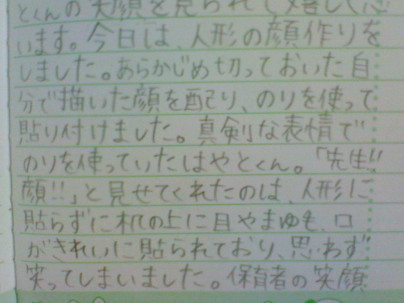 とくんの笑顔を見られて嬉しく思
います。今日は、人形の顔作りを
しました。あらかじめ切っておいた自
分で描いた顔を配り、のりを使って
貼り付けました。真剣な表情で
のりを使っていたはやとくん。「先生!!
顔!!」と見せてくれたのは、人形に
貼らずに机の上に目やまゆも、口
がきれいに貼られており、思わず
笑ってしまいました。保育者の笑顔